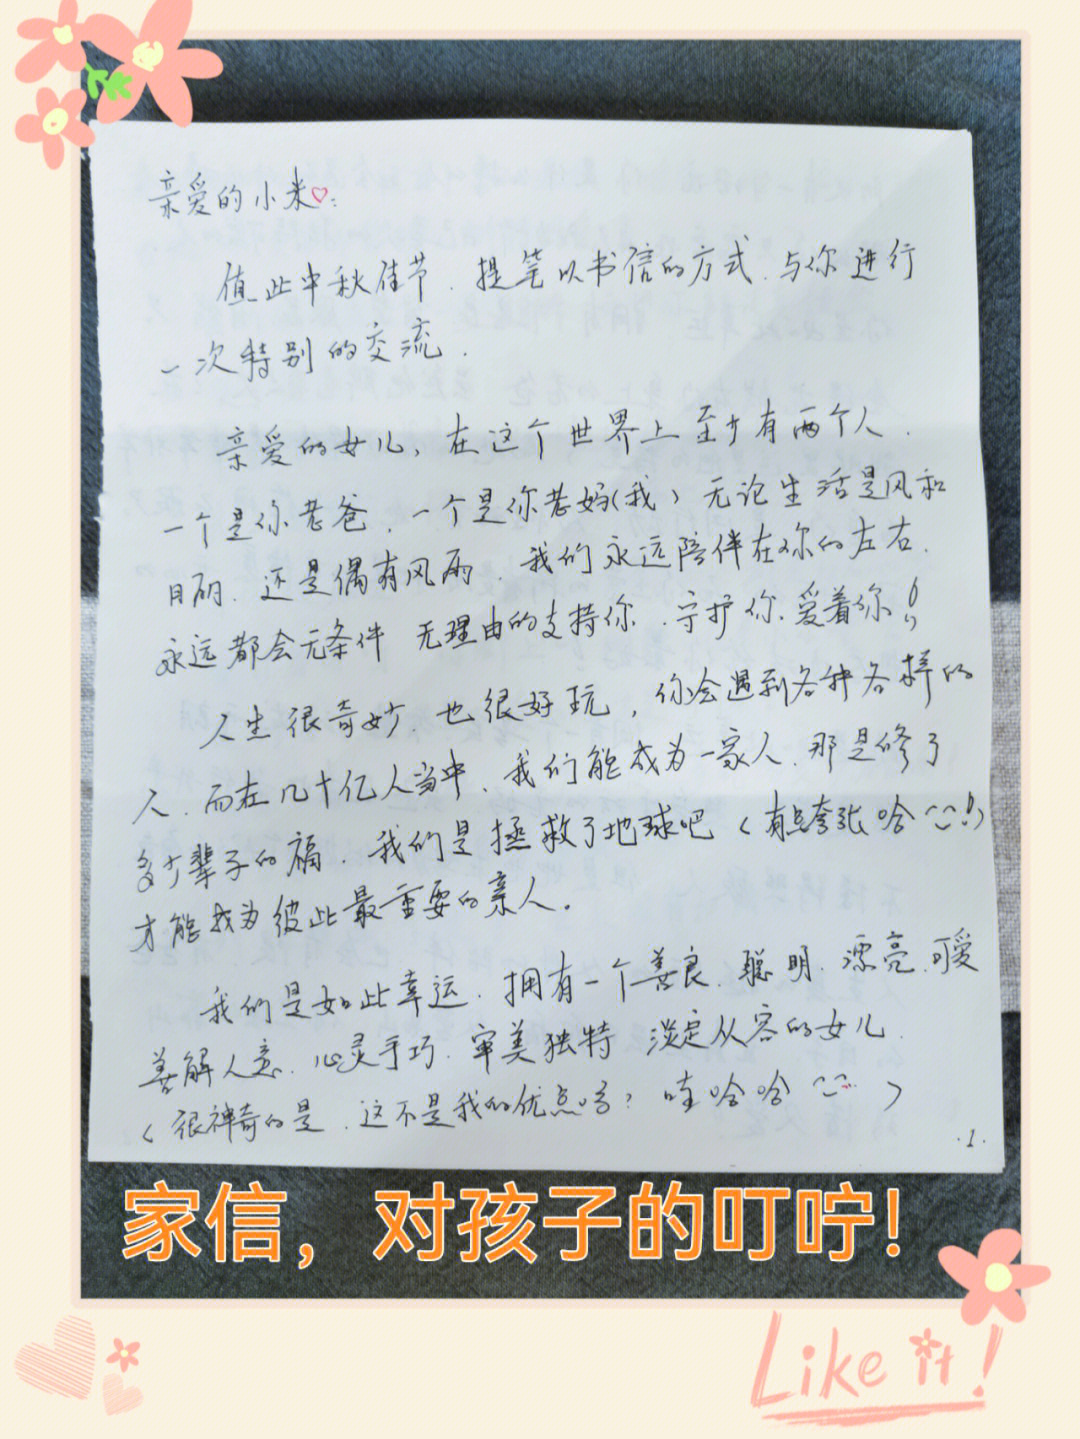 亲爱的小米♡:
值此中秋佳节.提笔以书信的方式.与你进行
一次特别的交流.
亲爱的女儿,在这个世界上至少有两个人.
一个是你老爸.一个是你老妈(我)无论生活是风和
日丽.还是偶有风雨.我们永远陪伴在你的左右.
永远都会无条件 无理由的支持你.守护你.爱着你!
人生很奇妙 也很好玩,你会遇到各种各样的
人.而在几十亿人当中.我们能成为一家人.那是修了
多少辈子的福.我们是拯救了地球吧(有点夸张哈!)
才能成为彼此最重要的亲人。
我们是如此幸运.拥有一个善良.聪明.漂亮.可爱
善解人意.心灵手巧.审美独特 淡定从容的女儿.
(很神奇的是.这不是我的优点吗?哇哈哈)
.1.
家信，对孩子的叮咛!
Like it!